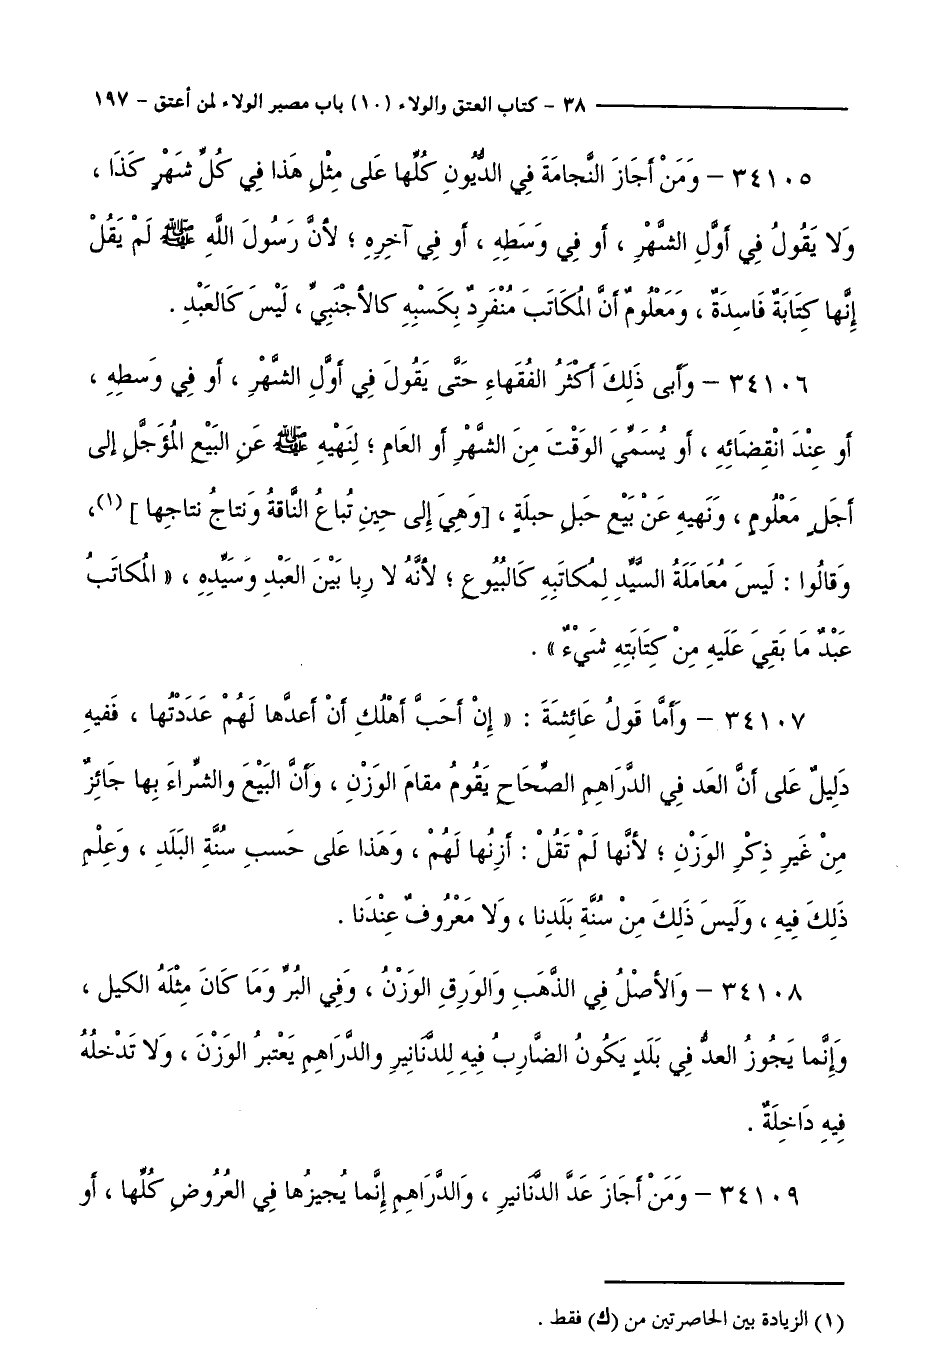 ٣٨ - كتاب العتق والولاء (١٠) باب مصير الولاء لمن أعتق - ١٩٧
٣٤١٠٥ - وَمَنْ أَجَازَ النَّجامَةَ فِي الدُّيُونِ كُلِّها عَلى مِثْلِ هَذا فِي كُلِّ شَهْرٍ كَذَا ،
وَلا يَقُولُ فِي أَوَّلِ الشَّهْرِ ، أو فِي وَسَطِهِ ، أو فِي آخِرِهِ ؛ لأنَّ رَسُولَ اللَّهِ ﷺ لَمْ يَقُلْ
إِنَّها كِتَابَةٌ فَاسِدَةٌ ، وَمَعْلُومٌ أَنَّ الْمُكَاتَبَ مُنْفَرِدٌ بِكَسْبِهِ كالأجْنَبِيِّ ، لَيْسَ كَالعَبْدِ .
٣٤١٠٦ - وَأَبى ذَلِكَ أَكْثَرُ الفُقَهاءِ حَتَّى يَقُولَ فِي أَوَّلِ الشَّهْرِ ، أو فِي وَسطِهِ ،
أو عِنْدَ انْقِضَائِهِ ، أو يُسَمِّيَ الوَقْتَ مِنَ الشَّهْرِ أو العَامِ ؛ لِنَهْيِهِ ﷺ عَنِ البَيْعِ الْمُؤَجَّلِ إلى
أجَلٍ مَعْلُومٍ ، وَنَهيِهِ عَنْ بَيْعِ حَبَلِ حبلَةٍ ، [وَهِيَ إِلى حِينِ تُباعُ النَّاقةُ وَنتاجُ نتاجِها ] (١)،
وَقَالُوا : لَيسَ مُعَامَلَةُ السَّيِّدِ لِمُكاتَبِهِ كَالبُيُوعِ ؛ لأَنَّهُ لا رِبا بَيْنَ العَبْدِ وَسَيِّدِهِ ، « الْمُكاتَبُ
عَبْدٌ مَا بَقِيَ عَلَيهِ مِنْ كِتَابَتِهِ شَيْءٌ» .
٣٤١٠٧ - وَأَمَّا قَولُ عَائِشَةَ : « إِنْ أَحَبَّ أَهْلُكِ أَنْ أَعدَّها لَهُمْ عَدَدْتُها ، فَفيهِ
دَلِيلٌ عَلى أنَّ العَد فِي الدَّرَاهِمِ الصِّحَاحِ يَقُومُ مقامَ الوَزْنِ ، وَأَنَّ البَيْعَ والشِّراءَ بِها جَائِزٌ
مِنْ غَيرِ ذِكْرِ الوَزْنِ ؛ لأنَّها لَمْ تَقُلْ : أزِنُها لَهُمْ ، وَهَذا عَلى حَسبِ سُنَّةِ البَلَدِ ، وَعِلْمِ
ذَلِكَ فِيهِ ، وَلَيسَ ذَلِكَ مِنْ سُنَّةِ بَلَدِنا ، وَلا مَعْرُوفٌ عِنْدَنا .
٣٤١٠٨ - وَالأصْلُ فِي الذَّهَبِ وَالوَرِقِ الوَزْنُ ، وَفِي البُرِّ وَمَا كَانَ مِثْلَهُ الكيل ،
وَإِنَّما يَجُوزُ العدُّ فِي بَلَدٍ يَكُونُ الضَّارِبُ فِيهِ لِلدَّنَانِيرِ والدَّرَاهِمِ يَعْتبرُ الوَزْنَ ، وَلا تَدْخلُهُ
فِيهِ دَاخِلَةٌ .
٣٤١٠٩ - وَمَنْ أَجَازَ عَدَّ الدَّنَانيرِ ، وَالدَّرَاهِمِ إِنَّما يُجيزُها فِي العُرُوضِ كُلِّها ، أو
(١) الزيادة بين الحاصرتين من (ك) فقط .